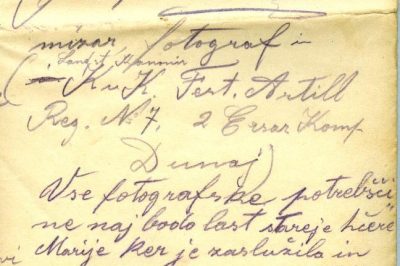 mizar, fotograf in
( K. u K. Fest. Artill
Reg. № 7, 2 Ersar Komp
Dunaj)
Vse fotografske potrebšči
ne naj bodo last stareje hčere
Marije ker je zaslužila in